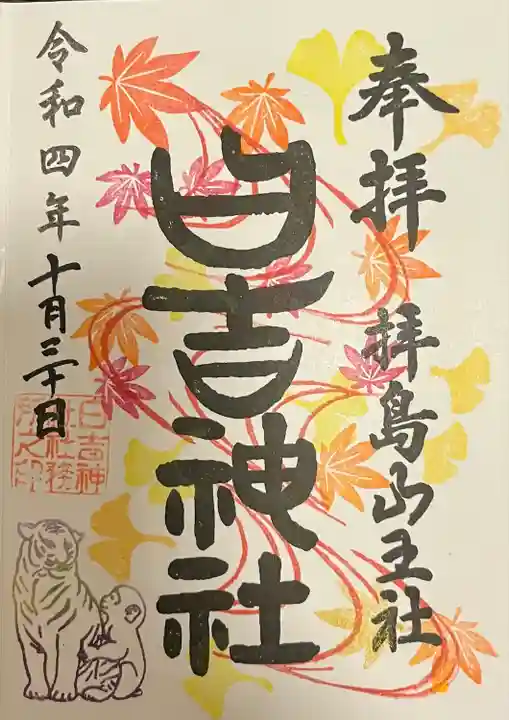 奉拝
拝島山王社
日吉神社
令和四年十月三十日
日吉神
社社務
所之印